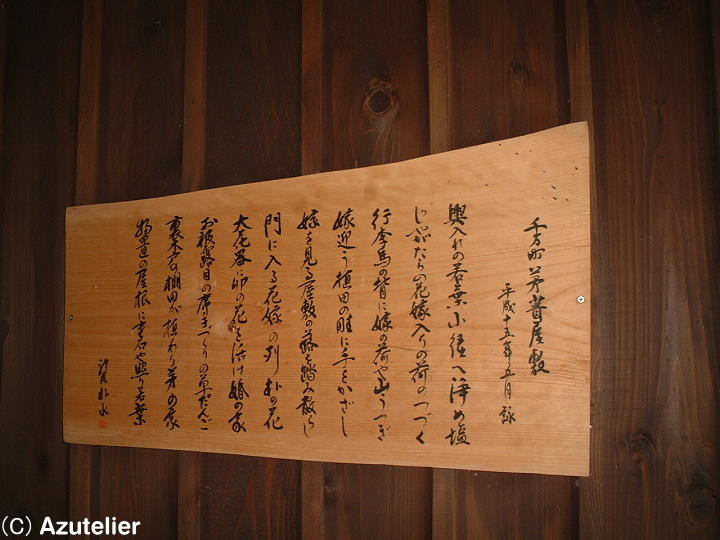 千万町茅葺屋敷
平成十五年五月 詠
輿入れの若葉小径へ浄め塩
じいがたらの花嫁入りの荷のつづく
行李馬の背に嫁の荷や山うつぎ
嫁迎う植田の畦に手をかざし
嫁を見る屋敷の蕗を踏み散らし
門に入る花嫁の列朴の花
大花器に卯の花を活け婚の家
お披露目の席手づくりの草だんご
裏木戸の棚田が植わり茅の家
物置の屋根に重石や照り若葉
朴水
(C) Azutelier